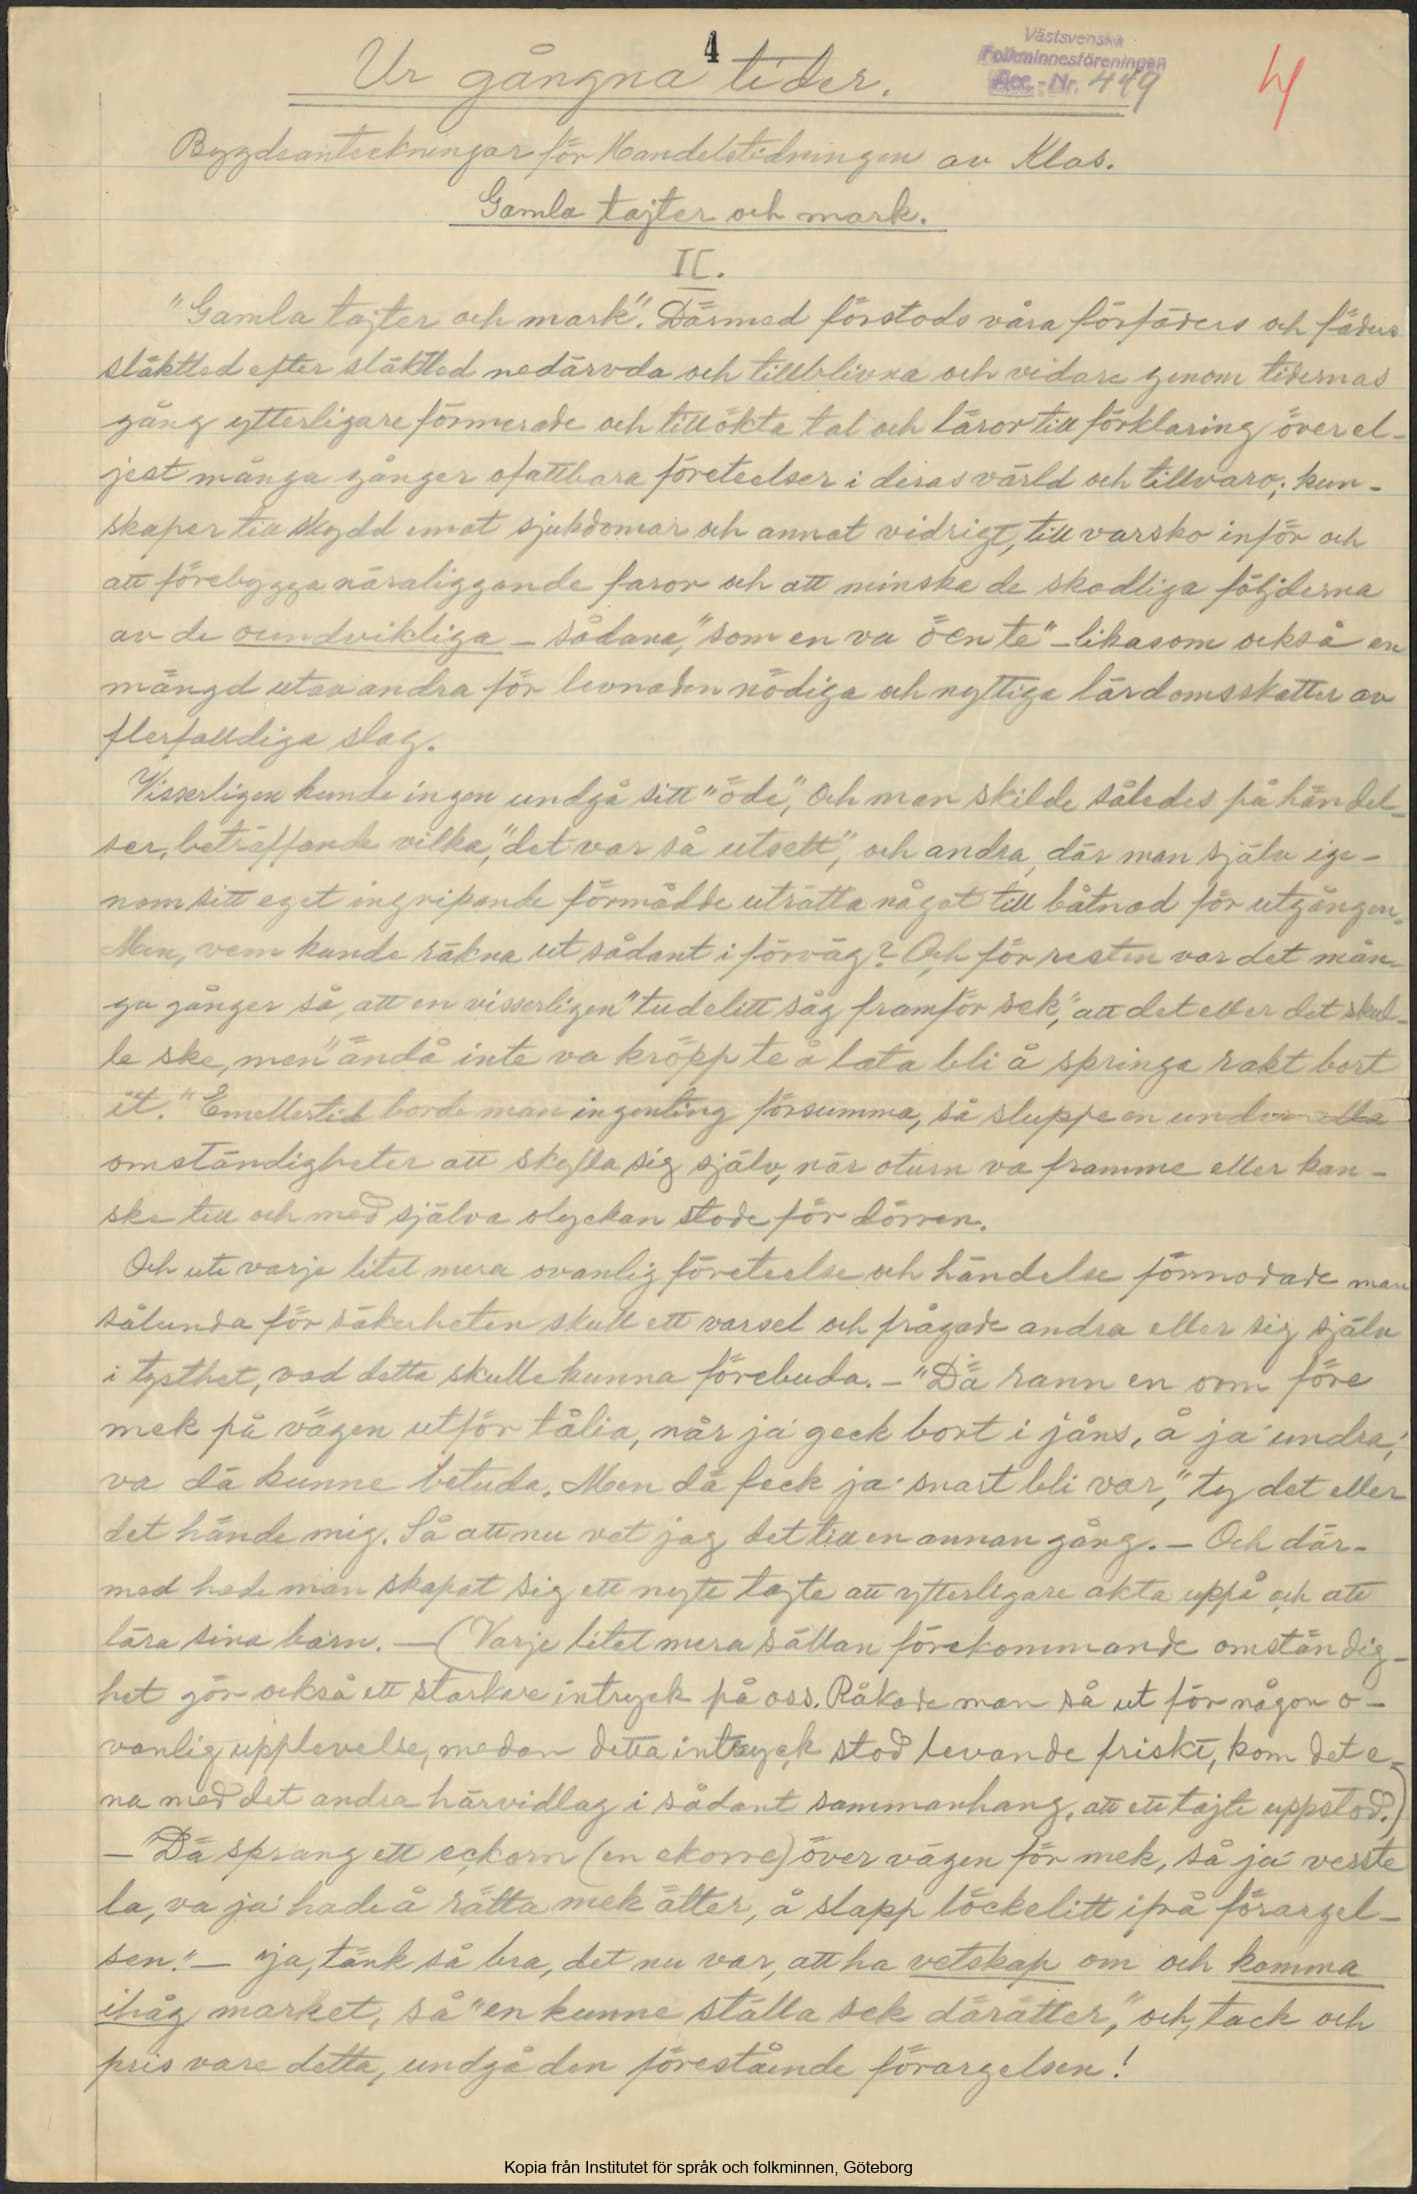 4
Västsvenska
Folkminnesföreningen
Acc.-Nr. 449
4
Ur gångna tider.
Bygdeanteckningar för Handelstidningen av Klas.
Gamla tajter och mark.
II.
"Gamla tajter och mark". Därmed förstods våra förfäders och fäders
släktled efter släktled nedärvda och tillblivna och vidare genom tidernas
gång ytterligare förmerade och tillökta tal och läror till förklaring över el-
jest många gånger ofattbara företeelser i deras värld och tillvaro; kun-
skaper till skydd emot sjukdomar och annat vidrigt, till varsko inför och
att förebygga näraliggande faror och att minska de skadliga följderna
av de oundvikliga – sådana, "som en va öen te" – likasom också en
mängd utav andra för levnaden nödiga och nyttiga lärdomsskatter av
flerfalldiga slag.
Visserligen kunde ingen undgå sitt "öde", och man skilde således på händel-
ser, beträffande vilka, "det var så utsett", och andra, där man själv ige-
nom sitt eget ingripande förmådde uträtta något till båtnad för utgången.
Men, vem kunde räkna ut sådant i förväg? Och för resten var det mån-
ga gånger så, att en visserligen "tudelitt såg framför sek", att det eller det skul-
le ske, men "ändå inte va kröpp te å lata bli å springa rakt bort
it." Emellertid borde man ingenting försumma, så sluppe en under alla
omständigheter att skylla sig själv, när oturn va framme eller kan-
ske till och med själva olyckan stode för dörren.
Och uti varje litet mera ovanlig företeelse och händelse förmodade man
sålunda för säkerheten skull ett varsel och frågade andra eller sig själv
i tysthet, vad detta skulle kunna förebuda. – "Dä rann en orm före
mek på vägen utför tålia, når ja geck bort i jåns, å ja undra,
va dä kunne betuda. Men dä feck ja snart bli var," ty det eller
det hände mig. Så att nu vet jag det till en annan gång. – Och där-
med hade man skapat sig ett nytt tajte att ytterligare akta uppå och att
lära sina barn. – (Varje litet mera sällan förekommande omständig-
het gör också ett starkare intryck på oss. Råkade man så ut för någon o-
vanlig upplevelse, medan detta intryck stod levande friskt, kom det e-
na med det andra härvidlag i sådant sammanhang, att ett tajte uppstod.)
– "Dä sprang ett eckorn (en ekorre) över vägen för mek, så ja vesste
la, va ja hade å rätta mek ätter, å slapp löckelitt ifrå förargel-
sen." – Ja, tänk så bra, det nu var, att ha vetskap om och komma
ihåg market, så "en kunne ställa sek därätter," och, tack och
pris vare detta, undgå den förestående förargelsen!
Kopia från Institutet för språk och folkminnen, Göteborg